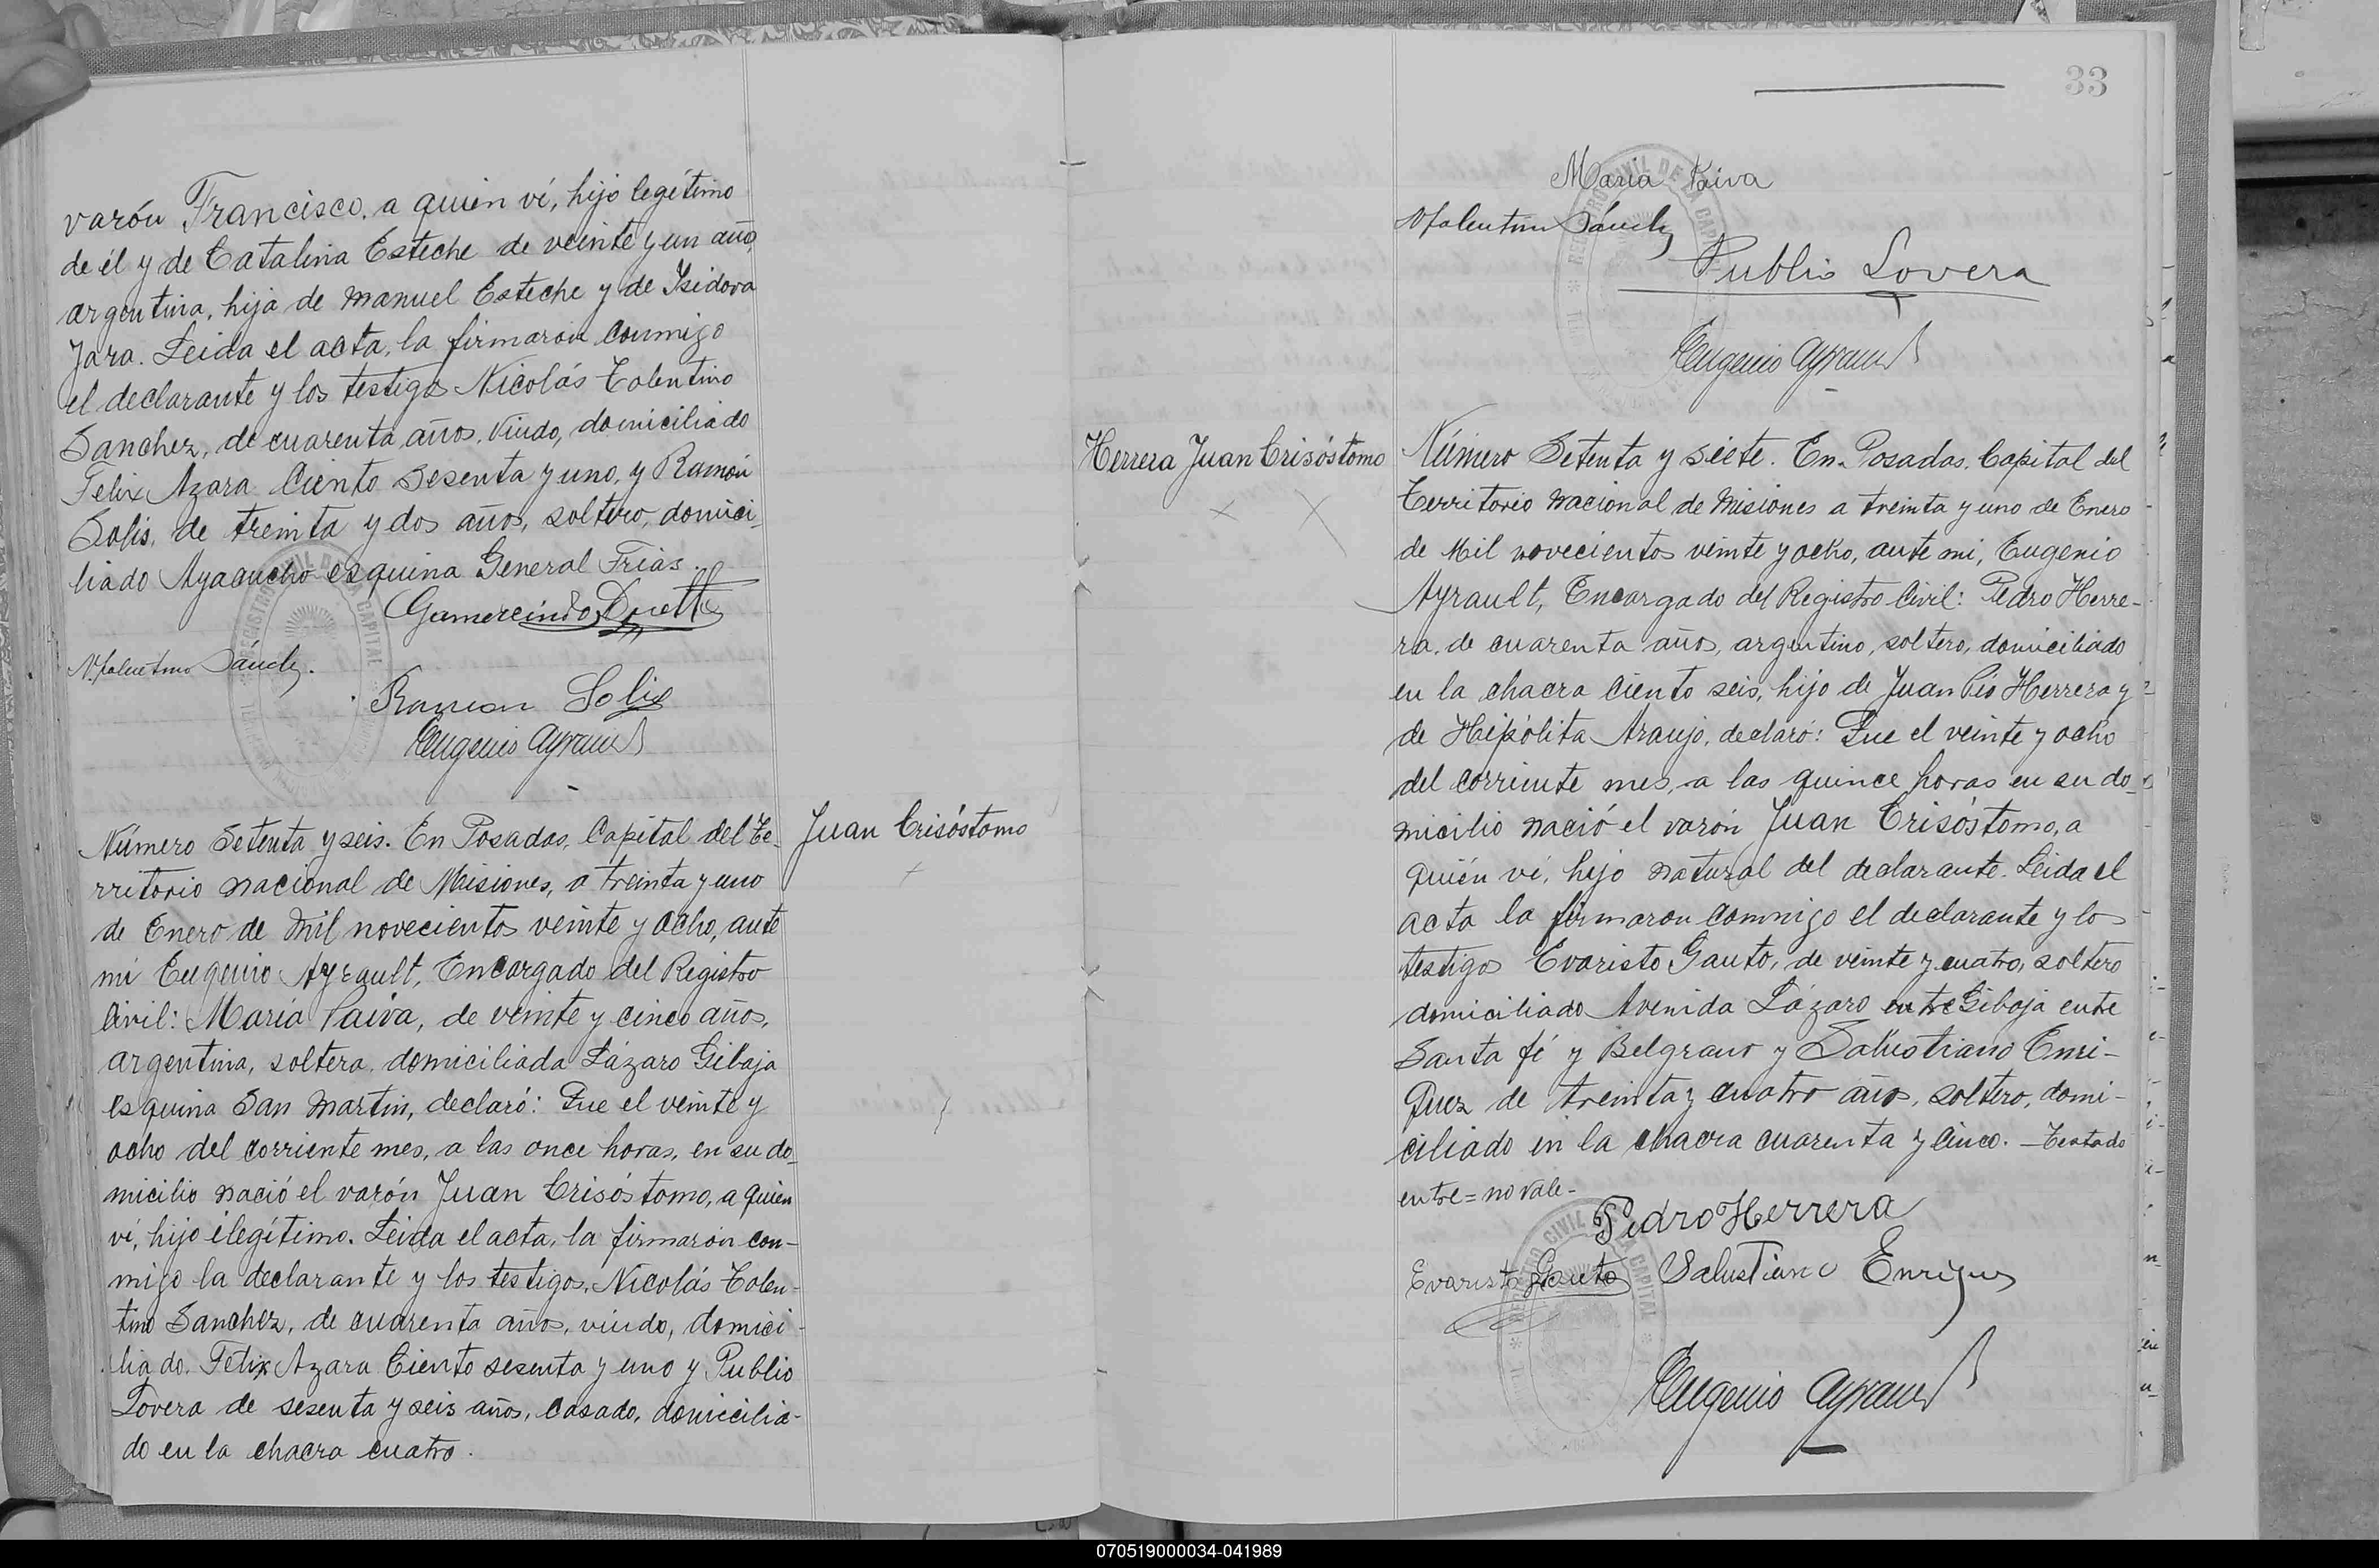 varón Francisco, a quien ví, hijo legítimo
de él y de Catalina Esteche de veinte y un años,
argentina, hija de Manuel Esteche y de Ysidora
Jara. Leida el acta, la firmaron conmigo
el declarante y los testigos Nicolás Tolentino
Sanchez, de cuarenta años, viudo, domiciliado
Felix Azara Ciento sesenta y uno, y Ramón
Solis, de treinta y dos años, soltero, domici-
liado Ayacucho esquina General Frias.
Gumercindo Duette
N. Tolentino Sánchz.
Ramon Solis
Eugenio Ayrault
Número Setenta y seis. En Posadas, Capital del Te-
rritorio nacional de Misiones, a treinta y uno
de Enero de Mil novecientos veinte y ocho, ante
mí Eugenio Ayrault, Encargado del Registro
Civil: María Paiva, de veinte y cinco años,
argentina, soltera, domiciliada Lázaro Gibaja
esquina San Martin, declaró: Que el veinte y
ocho del corriente mes, a las once horas, en su do-
micilio nació el varón Juan Crisóstomo, a quien
ví, hijo ilegítimo. Leida el acta, la firmaron con-
migo la declarante y los testigos, Nicolás Tolen-
tino Sanchez, de cuarenta años, viudo, domici-
liado, Felix Azara Ciento sesenta y uno y Publio
Lovera de sesenta y seis años, casado, domicilia-
do en la chacra cuatro.
Juan Crisóstomo
33
María Paiva
N Tolentino Sánchz
Publio Lovera
Eugenio Ayrault
Herrera Juan Crisóstomo
Número Setenta y siete. En Posadas, Capital del
Territorio nacional de Misiones a treinta y uno de Enero
de Mil novecientos veinte y ocho, ante mi, Eugenio
Ayrault, Encargado del Registro Civil: Pedro Herre-
ra, de cuarenta años, argentino, soltero, domiciliado
en la chacra ciento seis, hijo de Juan Pío Herrera y
de Hipólita Araujo, declaró: Que el veinte y ocho
del corriente mes, a las quince horas en su do-
micilio nació el varón Juan Crisóstomo, a
quién ví, hijo natural del declarante. Leida el
acta la firmaron conmigo el declarante y los
testigos Evaristo Gauto, de veinte y cuatro, soltero
domiciliado Avenida Lázaro entre Gibaja entre
Santa fé y Belgrano y Salustiano Enri-
quez de treinta y cuatro años, soltero, domi-
ciliado en la chacra cuarenta y cinco. — Testado
entre = no vale -
Pedro Herrera
Evaristo Gauto Salustiano Enriquez
Eugenio Ayrault
070519000034-041989